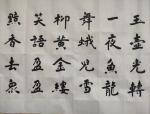 玉壺光轉
一夜魚龍
舞蛾兒雪
柳黃金縷
笑語盈盈
黯香去眾